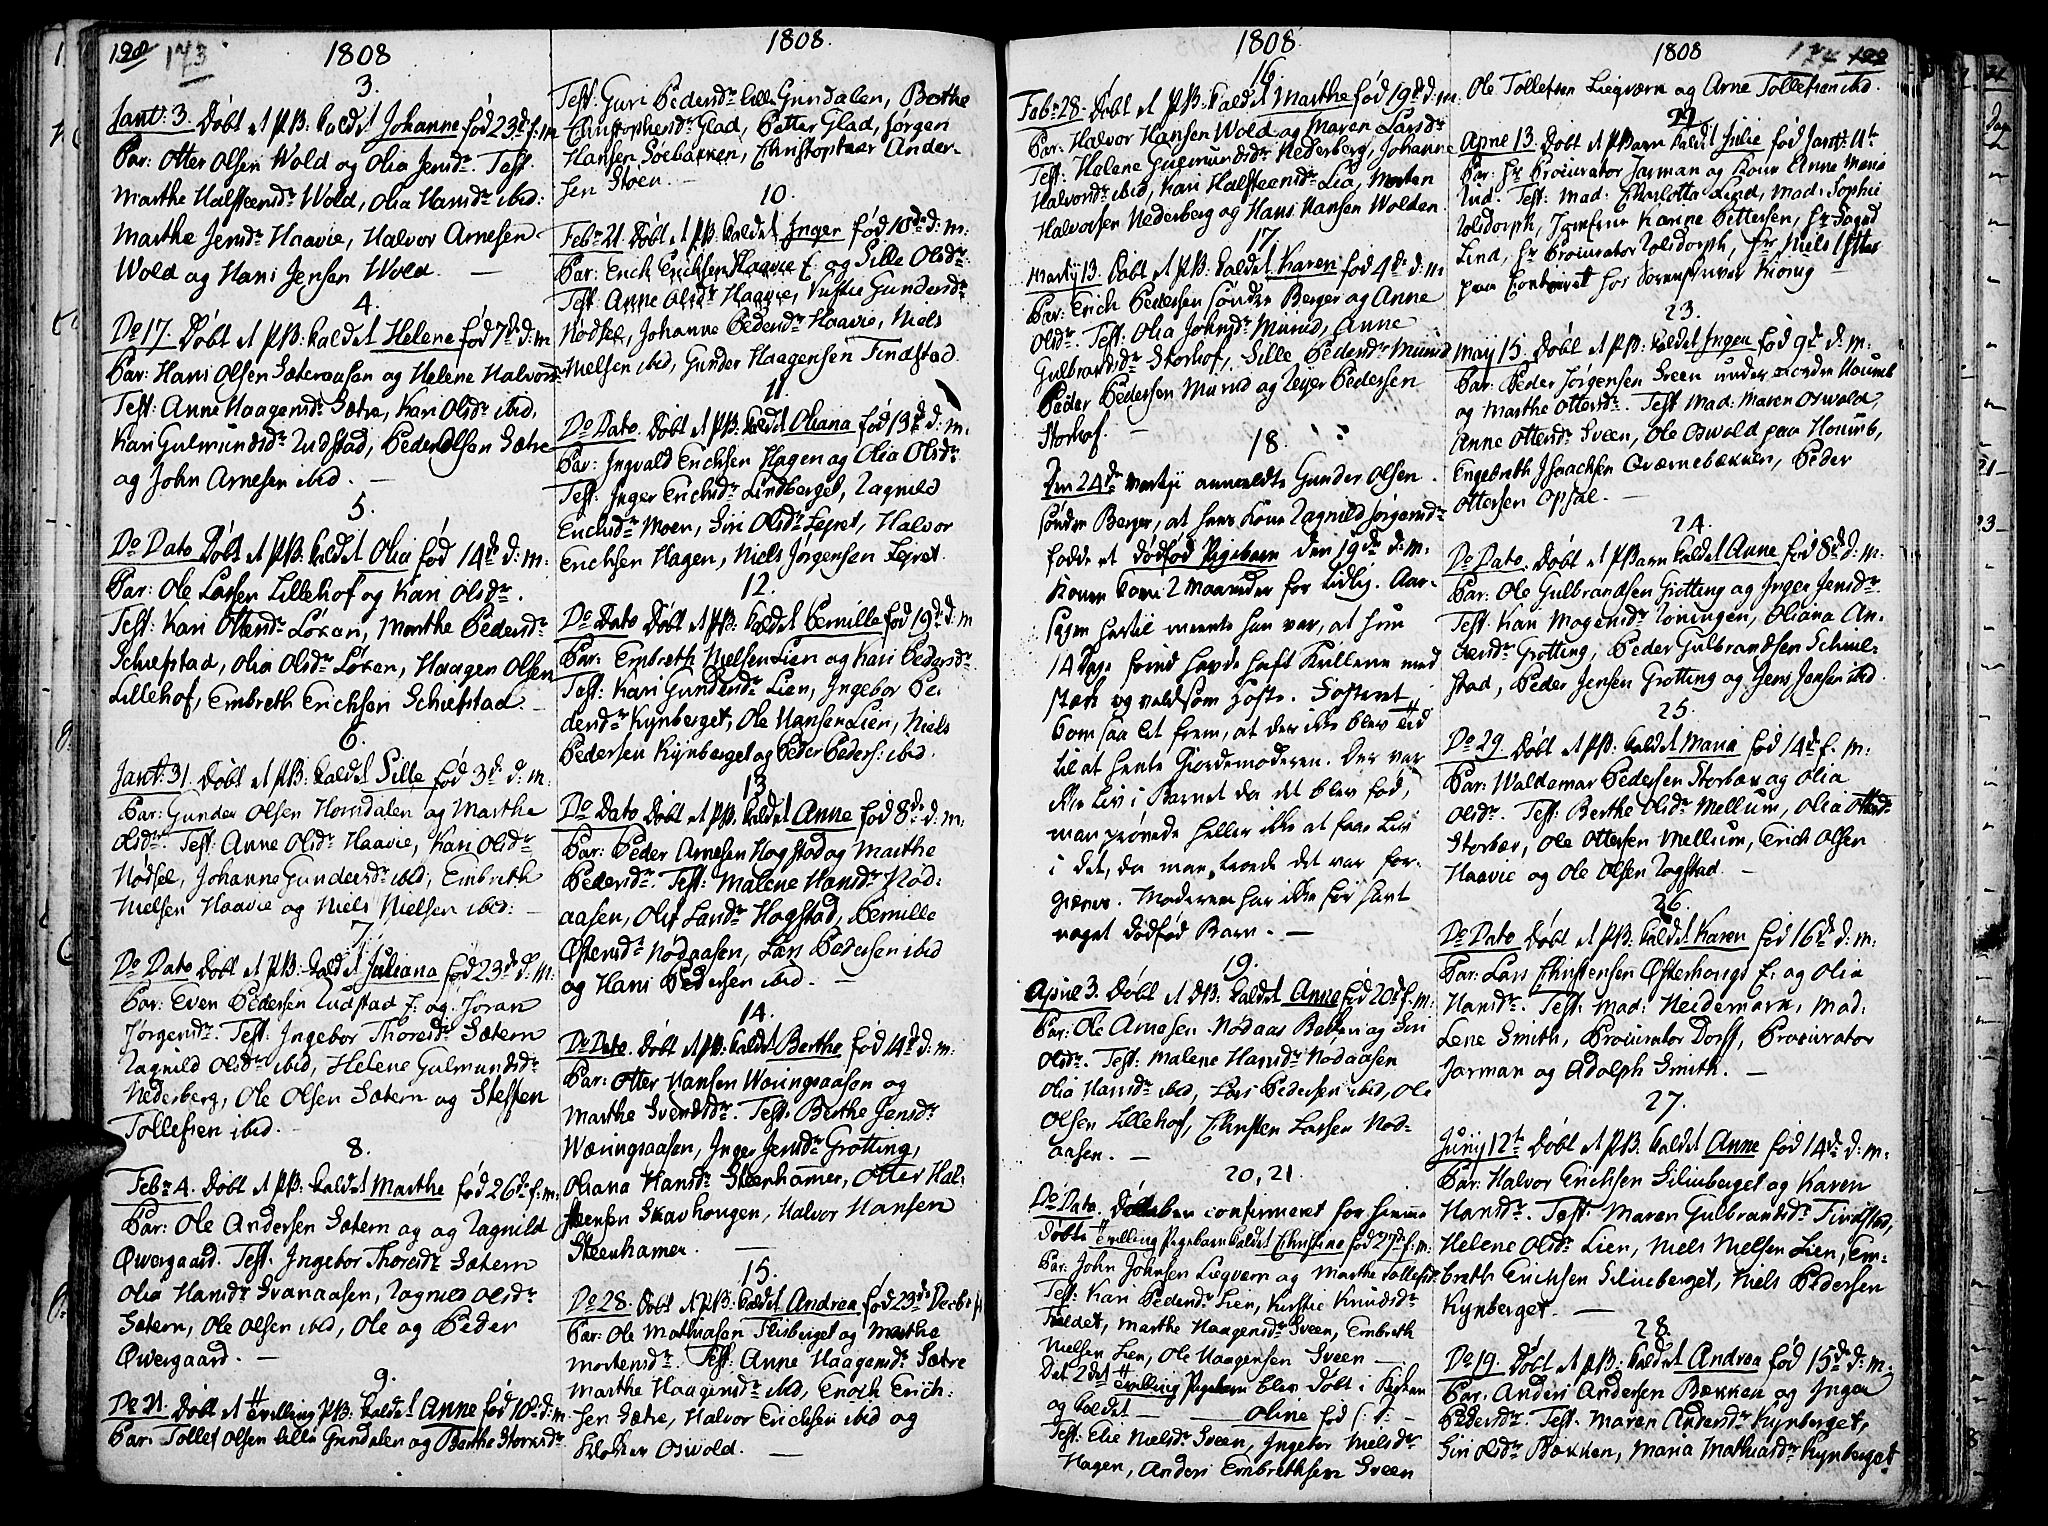 173
1808
3.
Jant: 3. Døbt et P.B: kaldet Johanne fød 23de f: m
Par: Otter Olsen Wold og Olia Jensdr. Test:
Marthe Halsteensdr Wold, Olia Hansdr ibid:
Marthe Jensdr Haavie, Halvor Arnesen
Wold og Hans Jensen Wold. —
4.
Do 17. Døbt et P.B: kaldet Helene fød 7de d: m
Par: Hans Olsen Sæteraasen og Helene Halvorsdr
Test: Anne Haagensdr Sætre, Kari Olsdr ibid,
Kari Gulmundsdr Rudstad, Peder Olsen Sætre
og John Arnesen ibid. —
5.
Do Dato Døbt et P.B: kaldet Olia fød 14de d: m.
Par: Ole Larsen Lillehof og Kari Olsdr.
Test: Kari Ottersdr Løken, Marthe Pedersdr
Schiefstad, Olia Olsdr Løken, Haagen Olsen
Lillehof, Embreth Erichsen Schiefstad. —
6.
Jant: 31. Døbt et P.B: kaldet Sille fød 3de d: m.
Par: Gunder Olsen Horndalen og Marthe
Olsdr. Test: Anne Olsdr Haavie, Kari Olsdr
Nødsel, Johanne Gundersdr ibid, Embreth
Nielsen Haavie og Niels Nielsen ibid: —
7.
Do Dato Døbt et P.B. kaldet Juliana fød 23de d: m:
Par: Even Pedersen Rudstad f: og Joran
Jørgensdr. Test: Ingebor Thoresdr Sætern
Ragnild Olsdr ibid, Helene Gulmundsdr
Nederberg, Ole Olsen Sætern og Steffen
Tollefsen ibid. —
8.
Febr 4. Døbt et P.B: kaldet Marthe fød 26de f: m:
Par: Ole Andersen Sætern og og Ragnild
Øvergaard. Test: Ingebor Thoresdr Sætern
Olia Hansdr Svanaasen, Ragnild Olsdr
Sætern, Ole Olsen ibid, Ole og Peder
Øvergaard. —
9.
Do 21. Døbt et Tvilling P.B: kaldet Anne fød 10de d: m
Par: Tollef Olsen lille Gundalen og Berthe Storkisdr
1808.
Test: Guri Pedersdr lille Gundalen, Berthe
Christophersdr Glad, Petter Glad, Jørgen
Hansen Soebakken, Christopher Ander-
sen Stoen. —
10.
Febr 21. Døbt et P.B. kaldet Inger fød 10de d: m:
Par: Erich Erichsen Haavie f. og Sille Olsdr.
Test: Anne Olsdr Haavie, Gundersdr
Nødsel, Johanne Pedersdr Haavie, Niels
Nielsen ibid, Gunder Haagensen Findstad.
11.
Do Dato. Døbt et P.B: kaldet Oliana fød 13de d: m.
Par: Ingvald Erichsen Hagen og Olia Olsdr.
Test: Inger Erichsdr Lindberget, Ragnild
Erichsdr Moen, Siri Olsdr Lejret, Halvor
Erichsen Hagen, Niels Jørgensen Lejret.
12.
Do Dato Døbt et P.B: kaldet Pernille fød 19de d: m
Par: Embreth Nielsen Lien og Kari Pedersdr.
Test: Kari Gundersdr Lien, Ingebor Pe-
dersdr Kynberget, Ole Hansen Lien, Niels
Pedersen Kynberget og Peder Peders: ibid.
13.
Do Dato Døbt et P.B: kaldet Anne fød 8de d: m:
Par: Peder Arnesen Hogstad og Marthe
Pedersdr. Test: Malene Hansdr Nød-
aasen, Olif Larsdr Hogstad, Pernille
Østensdr Nødaasen, Lars Pedersen ibid
og Hans Pedersen ibid. —
14.
Do Dato. Døbt et P.B: kaldet Berthe fød 14de d: m:
Par: Otter Hansen Wæringsaasen og
Marthe Svendsdr. Test: Berthe Jensdr
Wæringsaasen, Inger Jensdr Grøtting,
Oliana Hansdr Steenhamer, Otter Hal-
steensen Skavhougen, Halvor Hansen
Steenhamer. —
15.
Do 28. Døbt et P.B: kaldet Andrea fød 23de Decbr:
Par: Ole Mathiasen Flisberget og Marthe
Mortensdr. Test: Anne Haagensdr Sætre
Marthe Haagensdr ibid, Enoch Erich-
sen Sætre, Halvor Erichsen ibid og
Klokker Oswold. —
1808.
16.
Febr 28. Døbt et P.B: kaldet Marthe fød 19de d: m.
Par: Halvor Hansen Wold og Maren Larsdr
Test: Helene Gulmundsdr Nederberg, Johanne
Halvorsdr ibid, Kari Halsteensdr Lia, Morten
Halvorsen Nederberg og Hans Hansen Wolden.
17.
Martij 13. Døbt et P.B: kaldet Karen fød 4de d: m
Par: Erich Pedersen søndre Berger og Anne
Olsdr. Test: Olia Johnsdr Mürud, Anne
Gulbrandsdr Storhof, Sille Pedersdr Mürud
Peder Pedersen Mürud og Rejer Pedersen
Storhof. —
18.
Den 24de Martji anmeldte Gunder Olsen
søndre Berger, at hans Kone Ragnild Jørgensdr
fødde et dødfød Pigebarn den 19de d: m:
Konen kom 2 Maaneder for tidlig. Aar-
sagen hertil meente han var, at hun
14 Dage forud havde haft Kulden med
stærk og voldsom Hoste. Fosteret
kom saa let frem, at der ikke blev tid
til at hente Giordemoderen. Der var
ikke Liv i Barnet da det blev fød,
man prøvede heller ikke at faae Liv
i det, da man troede det var for-
giæves. Moderen har ikke før havt
noget dødfød Barn. —
19.
April 3. Døbt et D.B: kaldet Anne fød 20de f: m:
Par: Ole Arnesen Nødaas Bakken og Siri
Olsdr. Test: Malene Hansdr Nødaasen
Olia Hansdr ibid, Lars Pedersen ibid, Ole
Olsen Lillehof, Christen Larsen Nød-
aasen. —
20, 21.
Do Dato. Daaben confirmeret for hjemme
døbte Tvilling Pigebarn kaldet Christine fød 27de f: m:
Par: John Johnsen Liegvern og Marthe Tollefsdr.
Test: Kari Pedersdr Lien, Kirstie Knudsdr
Feldet, Marthe Haagensdr Sveen, Embreth
Nielsen Lien, Ole Haagensen Sveen —
Det 2det Tvilling Pigebarn blev døbt i Kirken
og kaldet — Oline fød —
Test: Elie Nielsdr Sveen, Ingebor Nielsdr
Hagen, Anders Embrethsen Sveen
1808
174
Ole Tollefsen Liegvern og Arne Tollefsen ibid.
22.
Aprie 13. Døbt et P.Barn kaldet Julie fød Jant: 11te
Par: Hr Procurator Jarman og Kone Anne Maria
Lind. Test: Mad: Charlotta Lind, Mad: Sophie
Rolsdorph, Jomfrue Karine Pettersen, Hr Foged
Lind, Hr Procurator Rolsdorph, Hr Niels Utter
paa Contoiret hos Sorenskriver Kionig
23.
May 15. Døbt et P.B: kaldet Ingen fød 9de d: m:
Par: Peder Jørgensen Sveen under nordre Houmb
og Marthe Ottersdr. Test Mad: Maren Oswold,
Anne Ottersdr Sveen, Ole Oswold paa Houmb,
Engebreth Isaachsen Qvernebækken, Peder
Ottersen Opsal. —
24.
Do Dato. Døbt et P.Barn kaldet Anne fød 8de d: m:
Par: Ole Gulbrandsen Grøtting og Inger Jensdr.
Test: Kari Mogensdr Roningen, Oliana An-
dersdr Grøtting, Peder Gulbrandsen Schiul-
stad, Peder Jensen Grøtting og Jens Jensen ibid.
25.
Do 29. Døbt et P.B: kaldet Maria fød 14de f: m:
Par: Waldemar Pedersen Storbær og Olia
Olsdr. Test: Berthe Olsdr Mellum, Olia Ottersdr
Storbær, Ole Ottersen Mellum, Erich Olsen
Haavie og Ole Olsen Rogstad. —
26.
Do Dato. Døbt et P.B: kaldet Karen fød 16de d: m:
Par: Lars Christensen Østerhouge f: og Olia
Hansdr. Test: Mad: Neidemark, Mad:
Lene Smith, Procurator Dorff, Procurator
Jarman og Adolph Smith. —
27.
Junij 12te Døbt et P.B: kaldet Anne fød 14de d: m:
Par: Halvor Erichsen Siliuberget og Karen
Hansdr. Test: Maren Gulbrandsdr Findstad,
Helene Olsdr Lien, Niels Nielsen Lien, Em-
breth Erichsen Siliuberget, Niels Pedersen
Kynberget. —
28.
Do 19. Døbt et P.B: kaldet Andrea fød 15de d: m:
Par: Anders Andersen Bækken og Inger
Pedersdr. Test: Maren Andersdr Kynberget,
Siri Olsdr Bækken, Maria Mathiasdr Kynberget